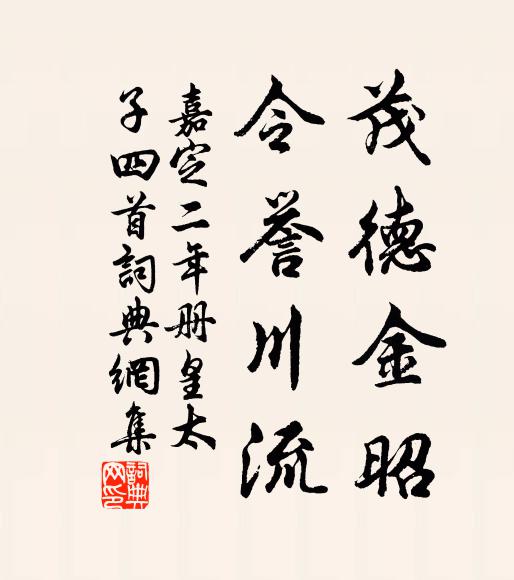 茂德金昭
令誉川流
嘉定二年册皇太
子四首詞典網集
詞典网印